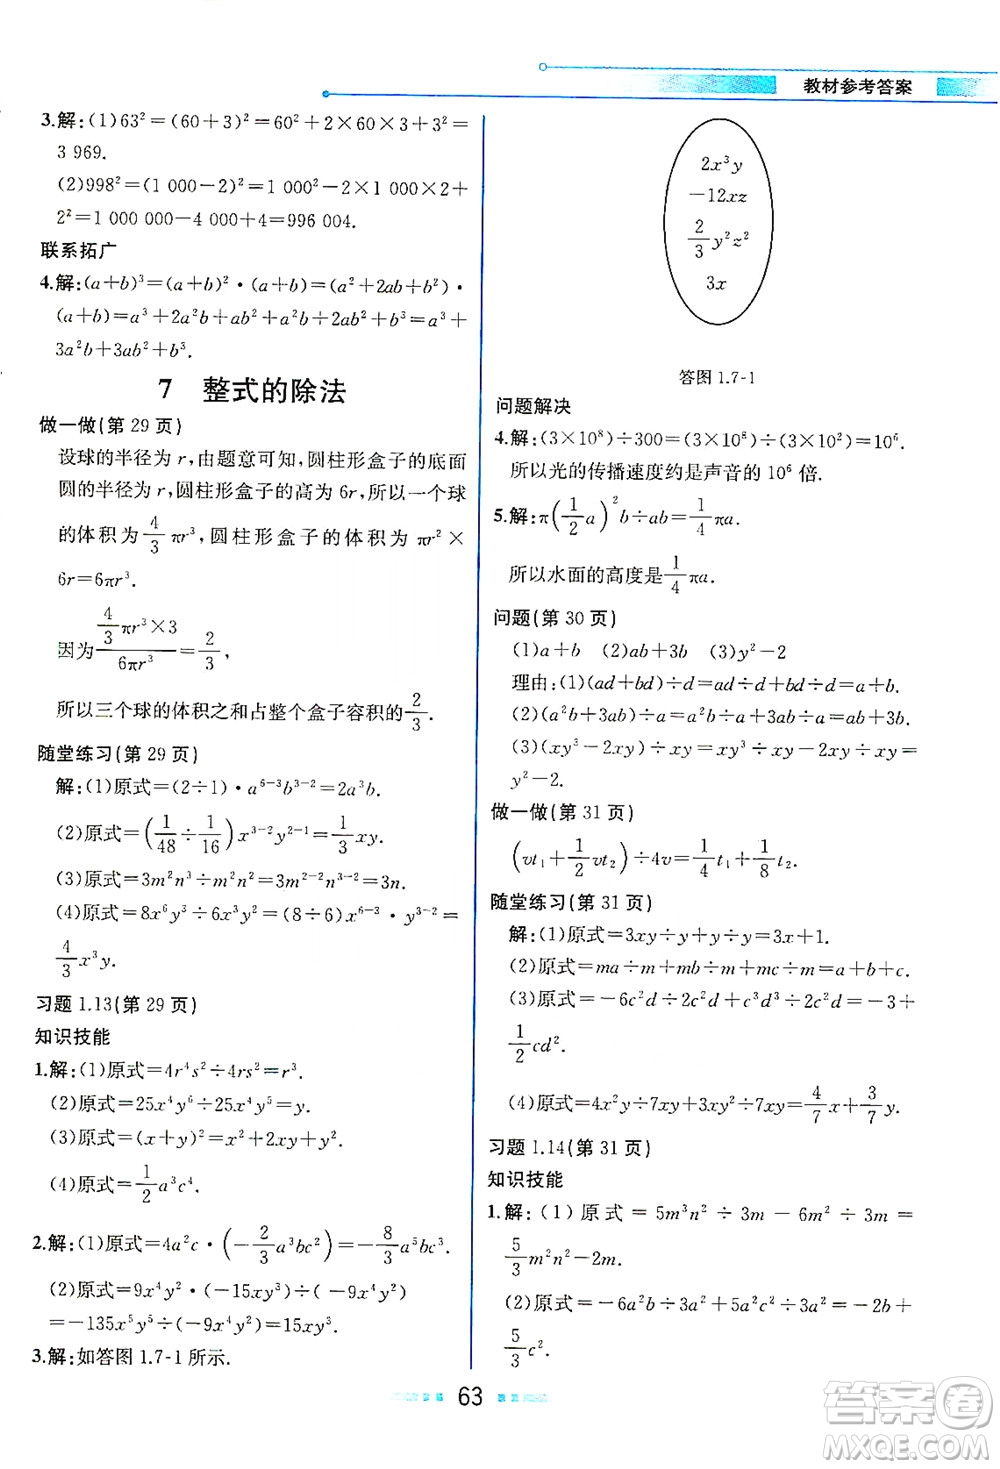 教材参考答案
3.解:(1)63²=(60+3)²=60²+2×60×3+3²=
3 969.
(2)998²=(1 000-2)²=1 000²-2×1 000×2+
2²=1 000 000-4 000+4=996 004.
联系拓广
4.解:(a+b)³=(a+b)²·(a+b)=(a²+2ab+b²)·
(a+b)=a³+2a²b+ab²+a²b+2ab²+b³=a³+
3a²b+3ab²+b³.
7 整式的除法
做一做(第 29 页)
设球的半径为 r,由题意可知,圆柱形盒子的底面
圆的半径为 r,圆柱形盒子的高为 6r,所以一个球
的体积为 4/3 πr³,圆柱形盒子的体积为 πr²×
6r=6πr³.
因为 (4/3 πr³×3)/(6πr³)=2/3,
所以三个球的体积之和占整个盒子容积的 2/3.
随堂练习(第 29 页)
解:(1)原式=(2÷1)·a⁶⁻³b³⁻²=2a³b.
(2)原式=(1/48÷1/16)x³⁻²y²⁻¹=1/3 xy.
(3)原式=3m²n³÷m²n²=3m²⁻²n³⁻²=3n.
(4)原式=8x⁶y³÷6x³y²=(8÷6)x⁶⁻³·y³⁻²=
4/3 x³y.
习题 1.13(第 29 页)
知识技能
1.解:(1)原式=4r⁴s²÷4rs²=r³.
(2)原式=25x⁴y⁶÷25x⁴y⁵=y.
(3)原式=(x+y)²=x²+2xy+y².
(4)原式=1/2 a³c⁴.
2.解:(1)原式=4a²c·(-2/3 a³bc²)=-8/3 a⁵bc³.
(2)原式=9x⁴y²·(-15xy³)÷(-9x⁴y²)
=-135x⁵y⁵÷(-9x⁴y²)=15xy³.
3.解:如答图 1.7-1 所示.
2x³y
-12xz
2/3 y²z²
3x
答图 1.7-1
问题解决
4.解:(3×10⁸)÷300=(3×10⁸)÷(3×10²)=10⁶.
所以光的传播速度约是声音的 10⁶ 倍.
5.解:π(1/2 a)²b÷ab=1/4 πa.
所以水面的高度是 1/4 πa.
问题(第 30 页)
(1)a+b (2)ab+3b (3)y²-2
理由:(1)(ad+bd)÷d=ad÷d+bd÷d=a+b.
(2)(a²b+3ab)÷a=a²b÷a+3ab÷a=ab+3b.
(3)(xy³-2xy)÷xy=xy³÷xy-2xy÷xy=
y²-2.
做一做(第 31 页)
(vt₁+1/2 vt₂)÷4v=1/4 t₁+1/8 t₂.
随堂练习(第 31 页)
解:(1)原式=3xy÷y+y÷y=3x+1.
(2)原式=ma÷m+mb÷m+mc÷m=a+b+c.
(3)原式=-6c²d÷2c²d+c³d³÷2c²d=-3+
1/2 cd².
(4)原式=4x²y÷7xy+3xy²÷7xy=4/7 x+3/7 y.
习题 1.14(第 31 页)
知识技能
1.解:(1)原式=5m³n²÷3m-6m²÷3m=
5/3 m²n²-2m.
(2)原式=-6a²b÷3a²+5a²c²÷3a²=-2b+
5/3 c².
63
答案卷
MXQE.COM